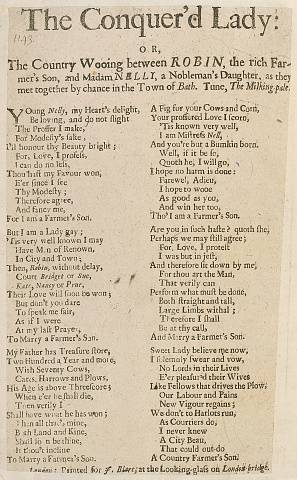 The Conquer'd Lady:
1143.
OR,
The Country Wooing between ROBIN, the rich Far-
mer's Son, and Madam NELLY, a Nobleman's Daughter, as they
met together by chance in the Town of Bath. Tune, The Milking-pale.
YOung Nelly, my Heart's delight,
Be loving, and do not slight
The Proffer I make,
For Modesty's sake,
I'll honour thy Beauty bright;
For, Love, I profess,
I can do no less,
Thou hast my Favour won,
E'er since I see
Thy Modesty;
Therefore agree,
And fancy me,
For I am a Farmer's Son.
But I am a Lady gay;
'Tis very well known I may
Have Men of Renown,
In City and Town;
Then, Robin, without delay,
Court Bridget or Sue,
Kate, Nancy or Prue,
Their Love will soon be won;
But don't you dare
To speak me fair,
As if I were
At my last Prayer,
To Marry a Farmer's Son.
My Father has Treasure store,
Two Hundred a Year and more,
With Seventy Cows,
Carts, Harrows and Plows,
His Age is above Threescore;
When e'er he shall die,
Then verily I
Shall have what he has won;
Then all that's mine,
Both Land and Kine,
Shall so n be thine,
It thou't incline
To Marry a Farmer's Son.
A Fig for your Cows and Corn,
Your proffered Love I scorn,
'Tis known very well,
I am Mistress Nell,
And you're but a Bumkin born.
Well, if it be so,
Quoth he, I will go,
I hope no harm is done:
Farewel, Adieu,
I hope to wooe
As good as you,
And win her too,
Tho' I am a Farmer's Son.
Are you in such haste? quoth she,
Perhaps we may still agree;
For, Love, I protest
I was but in jest,
And therefore sit down by me;
For thou art the Man,
That verily can
Perform what must be done,
Both straight and tall,
Large Limbs withal;
Therefore I shall
Be at thy call,
And Marry a Farmer's Son.
Sweet Lady believe me now,
I solemnly swear and vow,
No Lords in their Lives
E'er pleasur'd their Wives
Like Fellows that drives the Plow;
Our Labour and Pains
New Vigour regains;
We don't to Harlots run,
As Courtiers do;
I never knew
A City Beau,
That could out-do
A Country Farmer's Son.
London: Printed for J. Blare, at the Looking-glass on London-bridge.